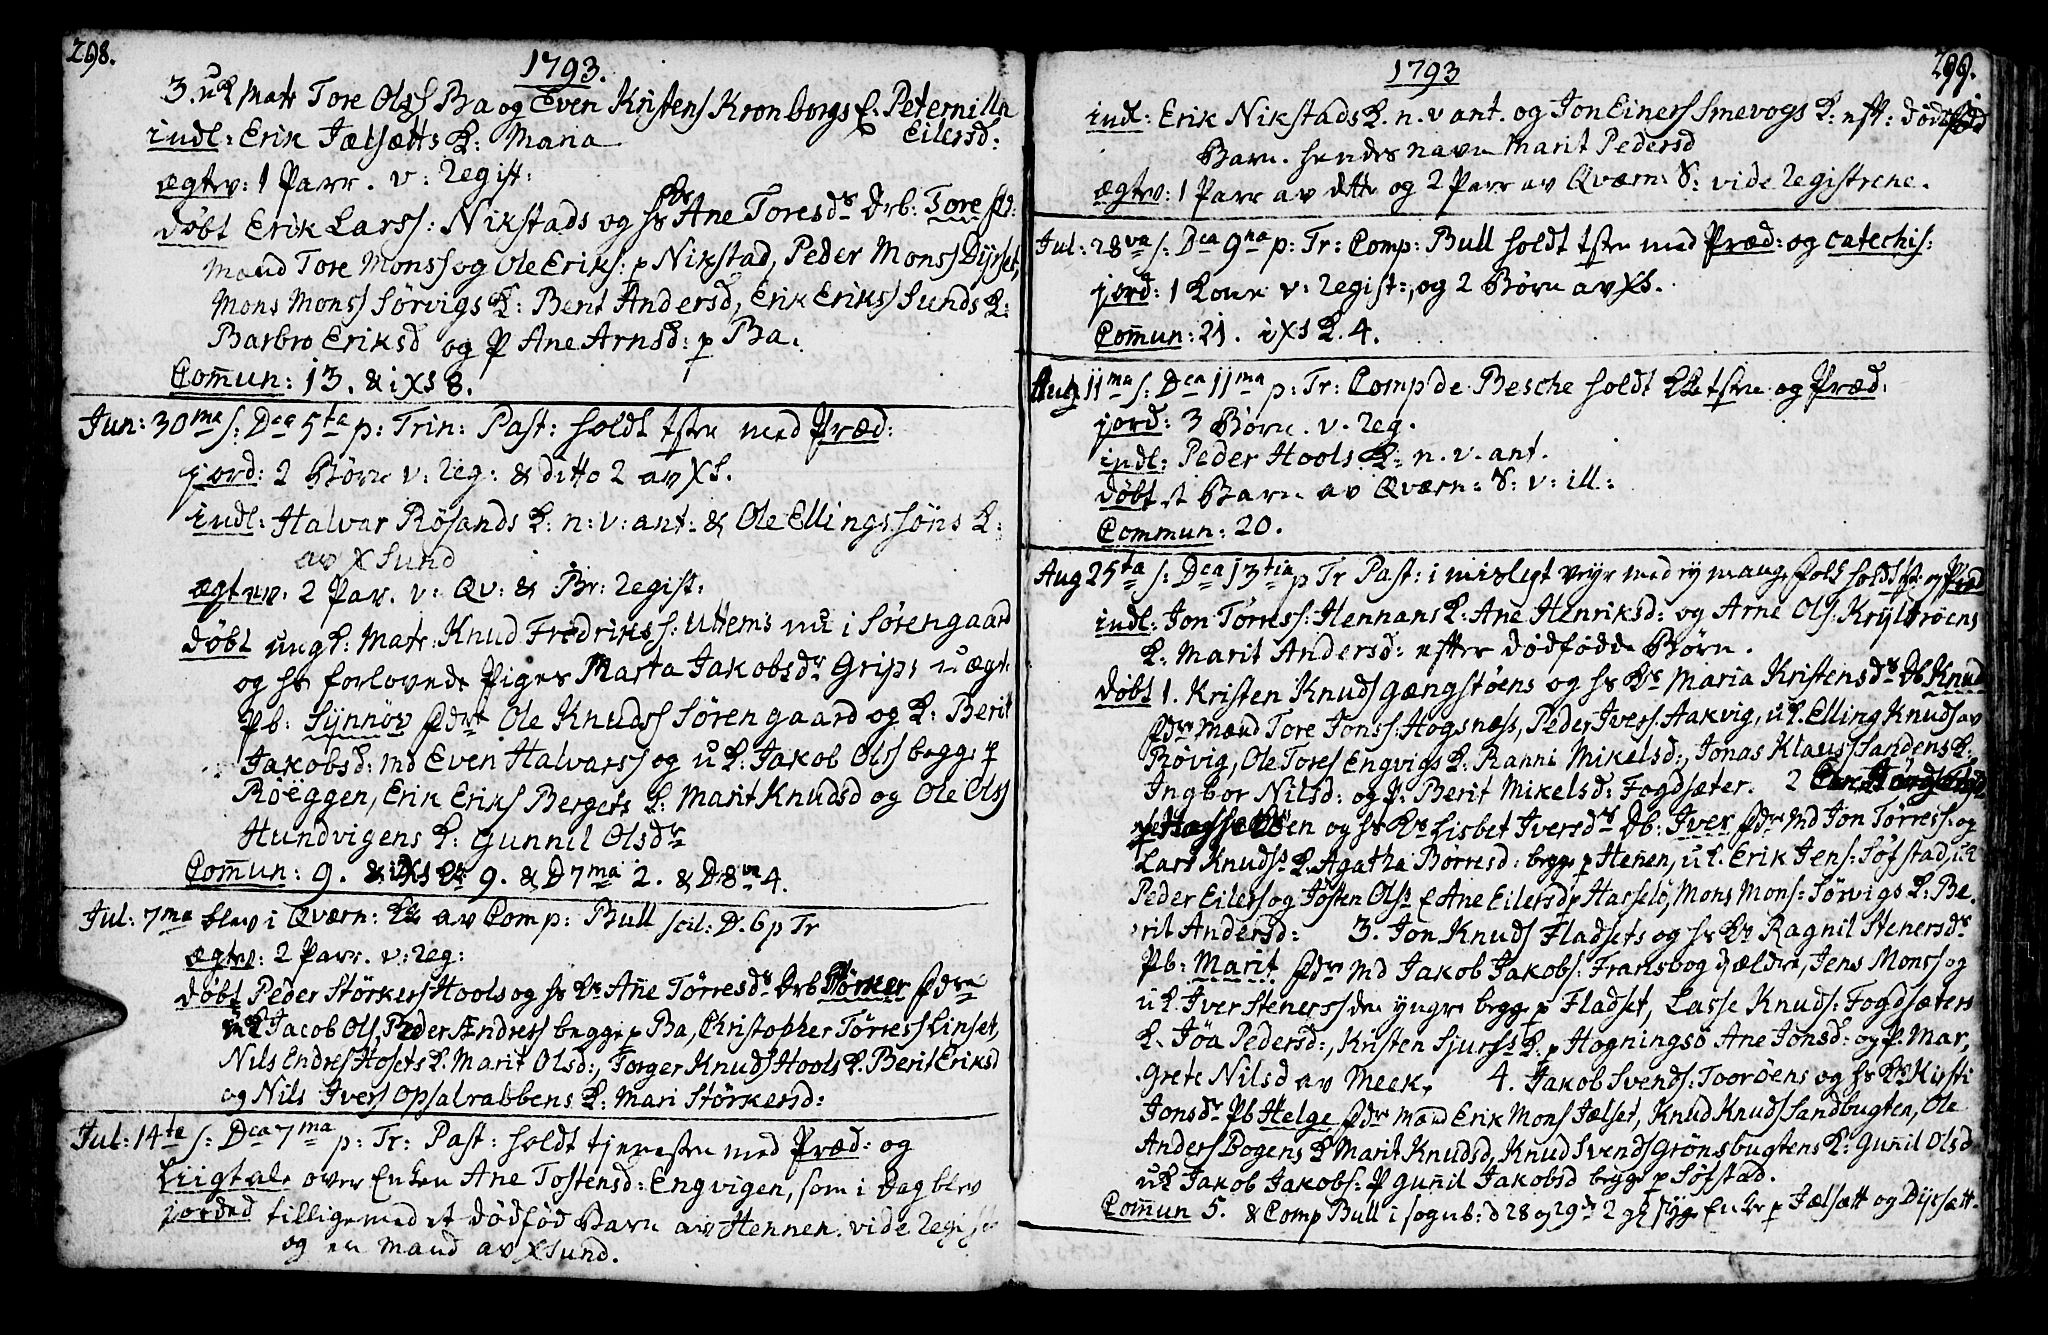 298.
1793.
3. uk Matr Tore Olss Ba og Even Kristens Kronborgs f: Peternilla
indl: Erik Jælsætts K: Maria Eilersd:
ægtev: 1 Parr. v: Regist:
døbt Erik Larss: Nikstads og hs Ks Ane Toresdr Drb: Tore fd:
mænd Tore Monss og Ole Eriks: p Nikstad, Peder Monss Dÿrset,
Mons Monss Sörvigs K: Berit Andersd, Erik Erikss Sunds K:
Barbro Eriksd og P Ane Arnsd: p Ba.
Com̄un: 13. & i Xs 8.
Jun: 30ma s: Dca 5ta p: Trin: Past: holdt tsten med Præd:
jord: 2 Börn v: Reg: & ditto 2 av XS.
indl: Halvar Rösands K: n: v: ant: & Ole Ellingssöns K:
av X Sund
ægtev: 2 Par. v: Qv: & Br: Regist:
døbt ungk: Matr: Knud Fredrikss: Uttems nu i Sörengaard
og hs forlovede Piges Marta Jakobsdr Grips uægt:
Pb: Sÿnnöv fdre Ole Knudss Sörengaard og K: Berit
Jakobsd: md Even Halvarss og uK: Jakob Olss begge p
Roëggen, Erik Eriks Bergets K: Marit Knudsd og Ole Olss
Hundvigens K: Gunnil Olsdr
Com̄un: 9. & 9. & D 7ma 2. & D 8va 4.
Jul: 7ma blev i Qværn: Kke av Comp: Bull scil: D. 6 p Tr
ægtev: 2 Parr. v: Reg:
døbt Peder Störkers Hools og hs Ks An̄e Törresdr Drb Störker fdre
uK Jacob Ols, Peder Anders begge p Ba, Christopher Törress Linset,
Nils Endres Hosets K: Marit Olsd:, Torger Knuds Hools K. Berit Eriksd
og Nils Ivers Opsalrabbens K: Mari Störkersd:
Jul: 14te s: Dca 7ma p: Tr: Past: holdt tjenesten med Præd: og
Liigtale over Enken Ane Tostensd: Engvigen, som i Dag blev
jorded tilligemed et dödföd Barn av Hennen. vide Regist
og en mand av XSund.
299.
1793
indl: Erik Nikstads K. n. v ant. og Jon Einers Smevogs K: eft: dödföd
Barn. hendes navn Marit Pedersd
ægtev: 1 Parr av dette og 2 Parr av Qværn: S: vide Registrene.
Jul: 28va s: Dca 9na p: Tr: Comp: Bull holdt tsten med Præd: og catechis:
jord: 1 Kone v: Regist:, og 2 Börn av XS.
Com̄un: 21. i Xs K. 4.
Aug 11ma s: Dca 11ma p: Tr: Comp de Besche holdt KKetsten og Præd:
jord: 3 Börn. v. Reg.
indl: Peder Hools. K: n. v. ant.
döbt et Barn av Qværn: S: v: ill:
Commun: 20.
Aug 25ta s: Dca 13tia p Tr Past: i misligt veyr med ey mange folk holdt tst: og Præd
indl: Jon Törress: Hennans K: Ane Henriksd: og Arne Ols: Krÿltröens
K: Marit Andersd: efter dödfödde Börn.
døbt 1. Kristen Knuds Gængstöens og hs Ks Maria Kristensdr Db Knud
fdre mænd Tore Jonss: Hogsnæss, Peder Ivers: Aakvig, uK. Elling Knuds av
Rövig, Ole Tores Engvigs K: Ranni Mikelsd:, Jonas Klaus Sandens K:
Ingbor Nilsd: og P: Berit Mikelsd: Fogdsæter. 2
og hs Ks Lisbet Iversdr Db: Iver fdre md Jon Törress: og
Lars Knuds K. Agatha Börresd: begge p Hen̄en, uK. Erik Jens: Söfstad, uK
Peder Eilers og Josten Ols f Ane Eilersd p Harselö, Mons Mons: Sörvigs K: Be:
rit Andersd: 3. Jon Knuds Fladsets og hs Ks Ragnil Stenersdr
Pb: Marit fdre md Jakob Jakobs: Fransbogdjældre, Jens Monss og
uK Iver Steners den yngre begge p Fladset, Lasse Knuds: Fogdsæters
K. Jöa Pedersd:, Kristen Sjurss K: p Hogningsö Ane Jonsd: og P. Mar,
grete Nilsd av Meek. 4. Jakob Svends: Tooröens og hs Ks Kirsti
Jonsdr Pb Helge fdre mænd Erik Mons Jælset, Knud Knuds Sandbugten, Ole
Anders Bogens K Marit Knudsd, Knud Svends Grönsbugtens K: Gun̄il Olsd
uK Jakob Jakobs: P Gun̄il Jakobsd begge p Söfstad.
Com̄un 5. & Comp Bull i sognb: d 28 og 29de 2 gl syge Enker p Jælsætt og Dÿrsætt.